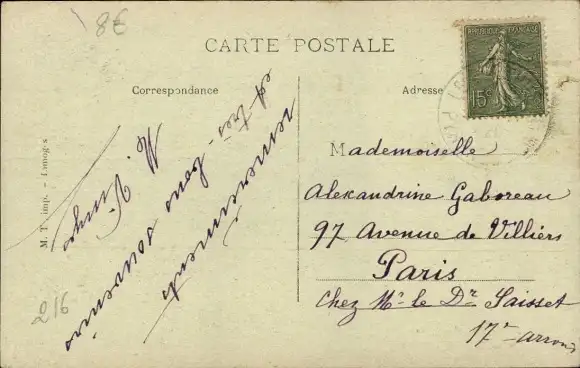 18€
CARTE POSTALE
Correspondance
Adresse
REPUBLIQUE FRANÇAISE
15c
remerciements
et très bons souvenirs
M.
M. T. imp. - Limoges
2016
Mademoiselle
Alexandrine Gaboreau
97 Avenue de Villiers
Paris
Chez Mr le Dr Saisset
17e arrond